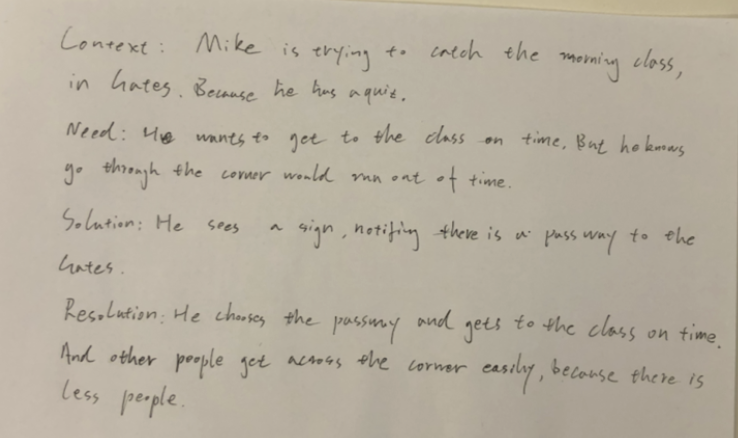 Context: Mike is trying to catch the morning class,
in Gates. Because he has a quiz.
Need: He wants to get to the class on time. But he knows
go through the corner would run out of time.
Solution: He sees a sign, notifing there is a pass way to the
Gates.
Resolution: He chooses the passway and gets to the class on time.
And other people get across the corner easily, because there is
less people.